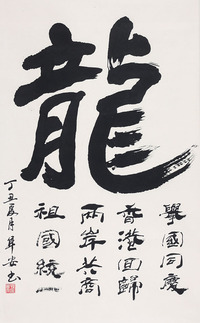 龍
舉國同慶
香港回歸
兩岸共商
祖國統一
丁丑夏月年安書